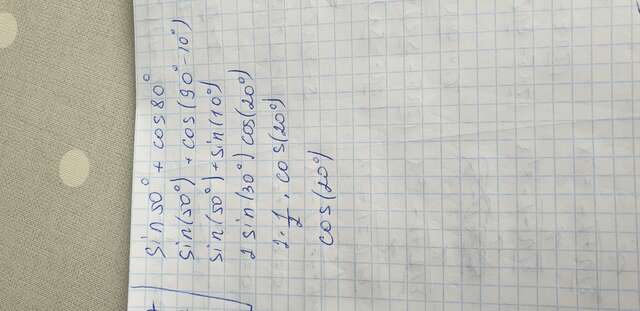 sin 50° + cos 80°
sin(50°) + cos(90° - 10°)
sin(50°) + sin(10°)
2 sin(30°) cos(20°)
2 · 1/2 · cos(20°)
cos(20°)